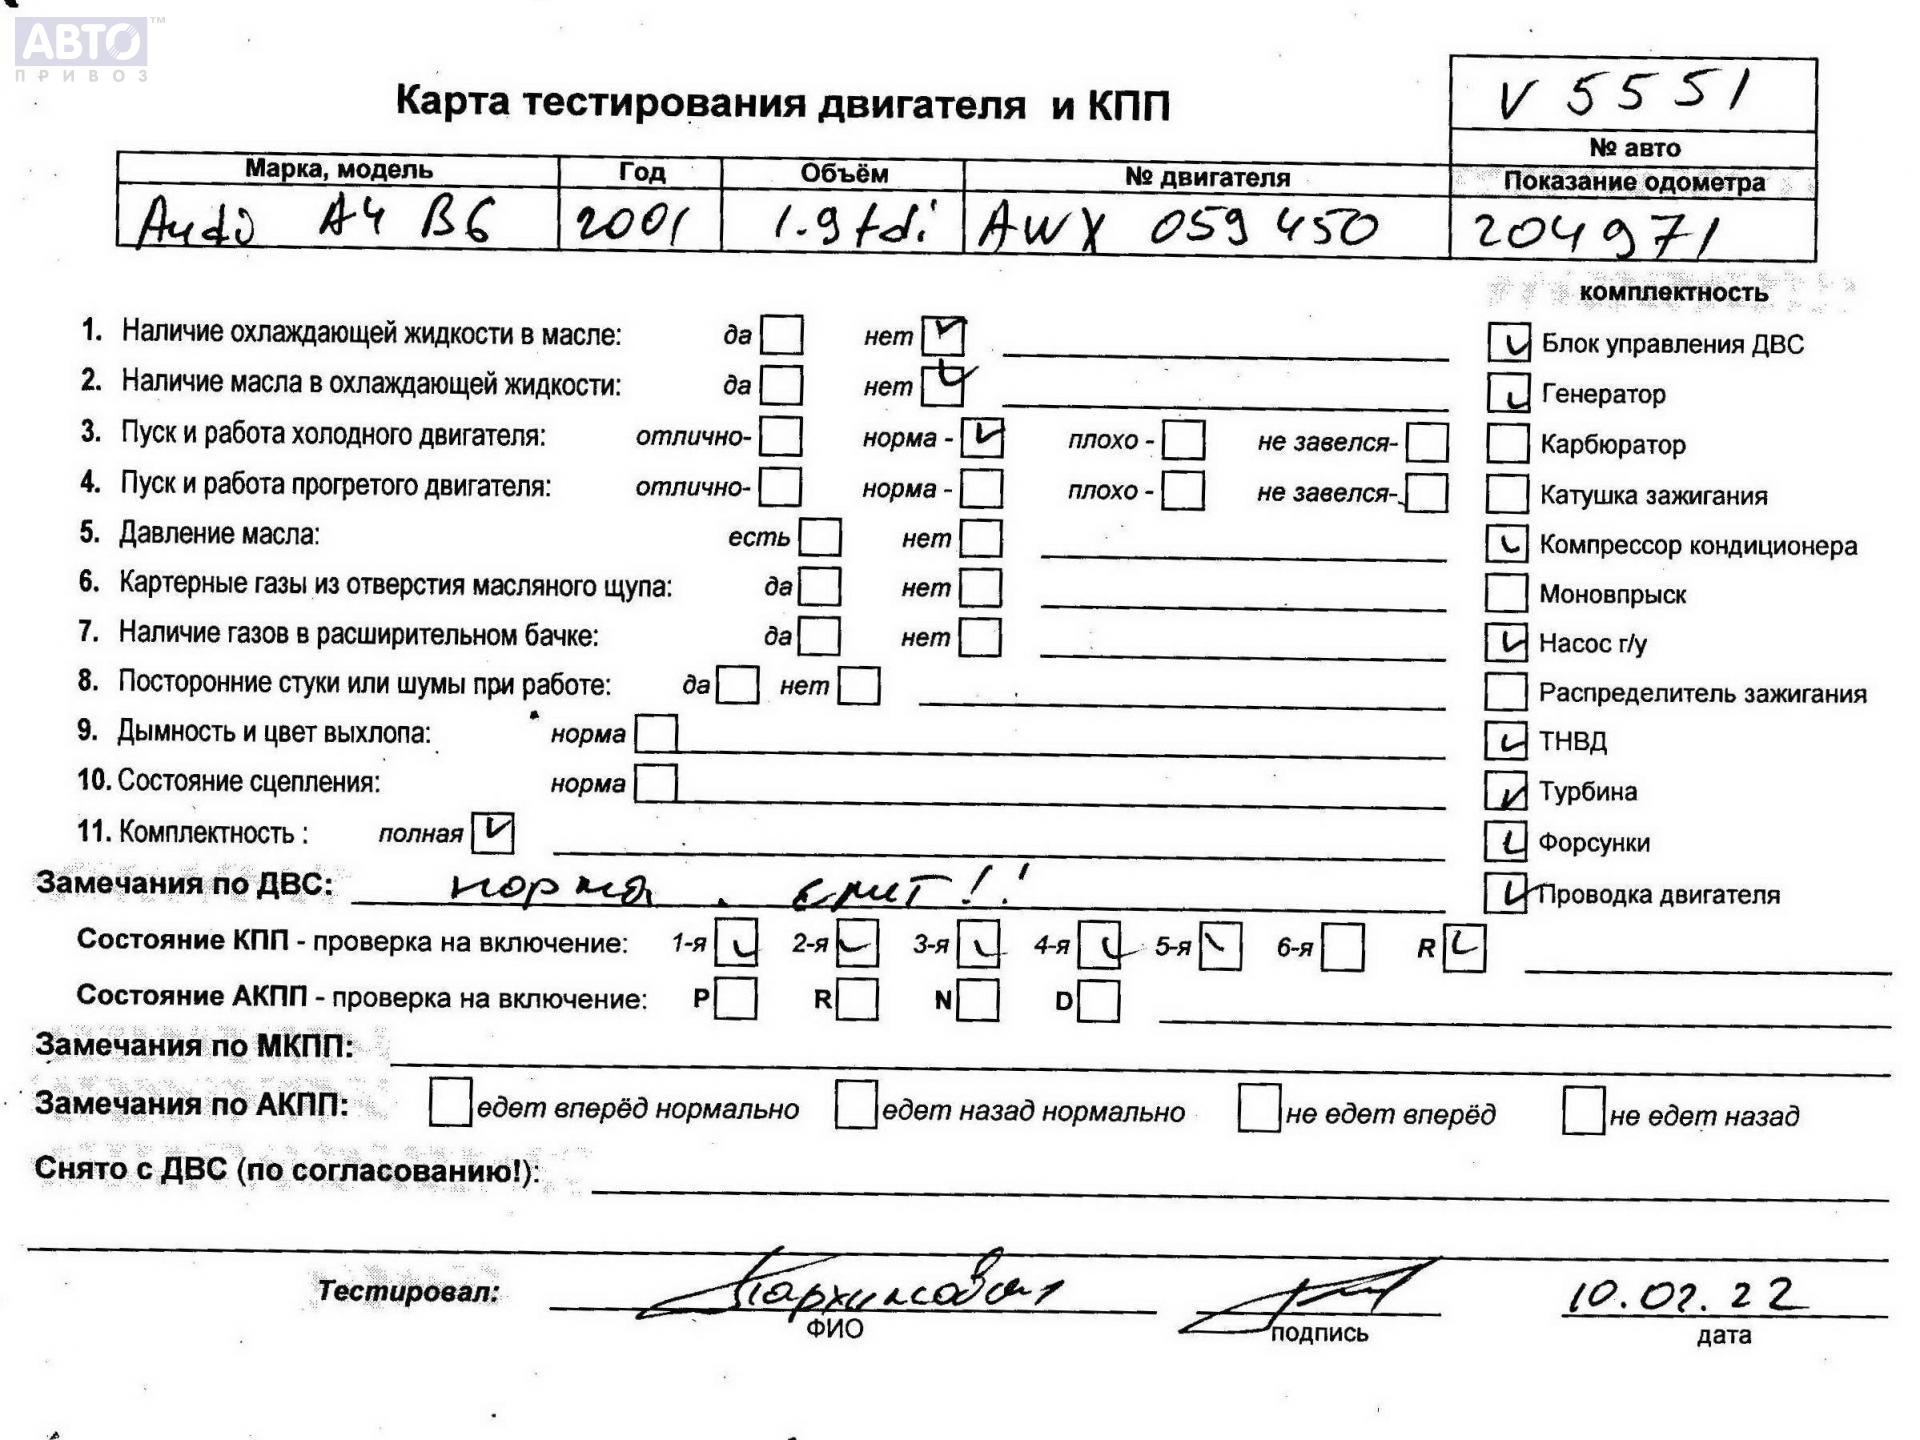 АВТО™
ПРИВОЗ
Карта тестирования двигателя и КПП
V 5551
№ авто
Марка, модель Год Объём № двигателя Показание одометра
Audi A4 B6 2001 1.9 tdi AWX 059 450 204971
комплектность
1. Наличие охлаждающей жидкости в масле: да нет Блок управления ДВС
2. Наличие масла в охлаждающей жидкости: да нет Генератор
3. Пуск и работа холодного двигателя: отлично- норма - плохо - не завелся- Карбюратор
4. Пуск и работа прогретого двигателя: отлично- норма - плохо - не завелся- Катушка зажигания
5. Давление масла: есть нет Компрессор кондиционера
6. Картерные газы из отверстия масляного щупа: да нет Моновпрыск
7. Наличие газов в расширительном бачке: да нет Насос г/у
8. Посторонние стуки или шумы при работе: да нет Распределитель зажигания
9. Дымность и цвет выхлопа: норма ТНВД
10. Состояние сцепления: норма Турбина
11. Комплектность : полная Форсунки
Замечания по ДВС: норма. Проводка двигателя
Состояние КПП - проверка на включение: 1-я 2-я 3-я 4-я 5-я 6-я R
Состояние АКПП - проверка на включение: P R N D
Замечания по МКПП:
Замечания по АКПП: едет вперёд нормально едет назад нормально не едет вперёд не едет назад
Снято с ДВС (по согласованию!):
Тестировал: 10.02.22
ФИО подпись дата